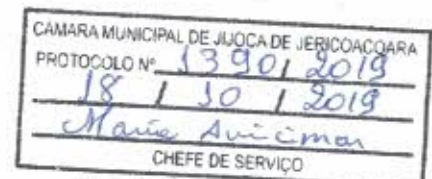 CÂMARA MUNICIPAL DE JIJOCA DE JERICOACOARA
PROTOCOLO Nº 1390 / 2019
18 / 10 / 2019
Maria Avicimar
CHEFE DE SERVIÇO